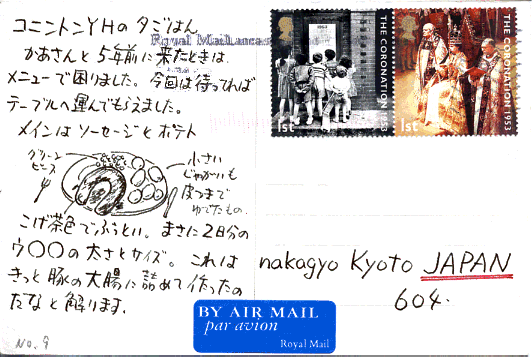 コニントンYHの夕ごはん
かあさんと5年前に来たときは、
メニューで困りました。今回は待ってれば
テーブルへ運んでもらえました。
メインは ソーセージと ポテト
グリーン
ピース
小さい
じゃがいも
皮つきで
ゆでたもの.
こげ茶色でぶっとい。まさに2日分の
ウ〇〇の太さとサイズ。これは
きっと豚の大腸に詰めて作ったの
だなと解ります.
No. 9
Royal Mail
1953
THE CORONATION
1953
1st
THE CORONATION
1953
1st
nakagyo Kyoto JAPAN
604.
BY AIR MAIL
par avion
Royal Mail